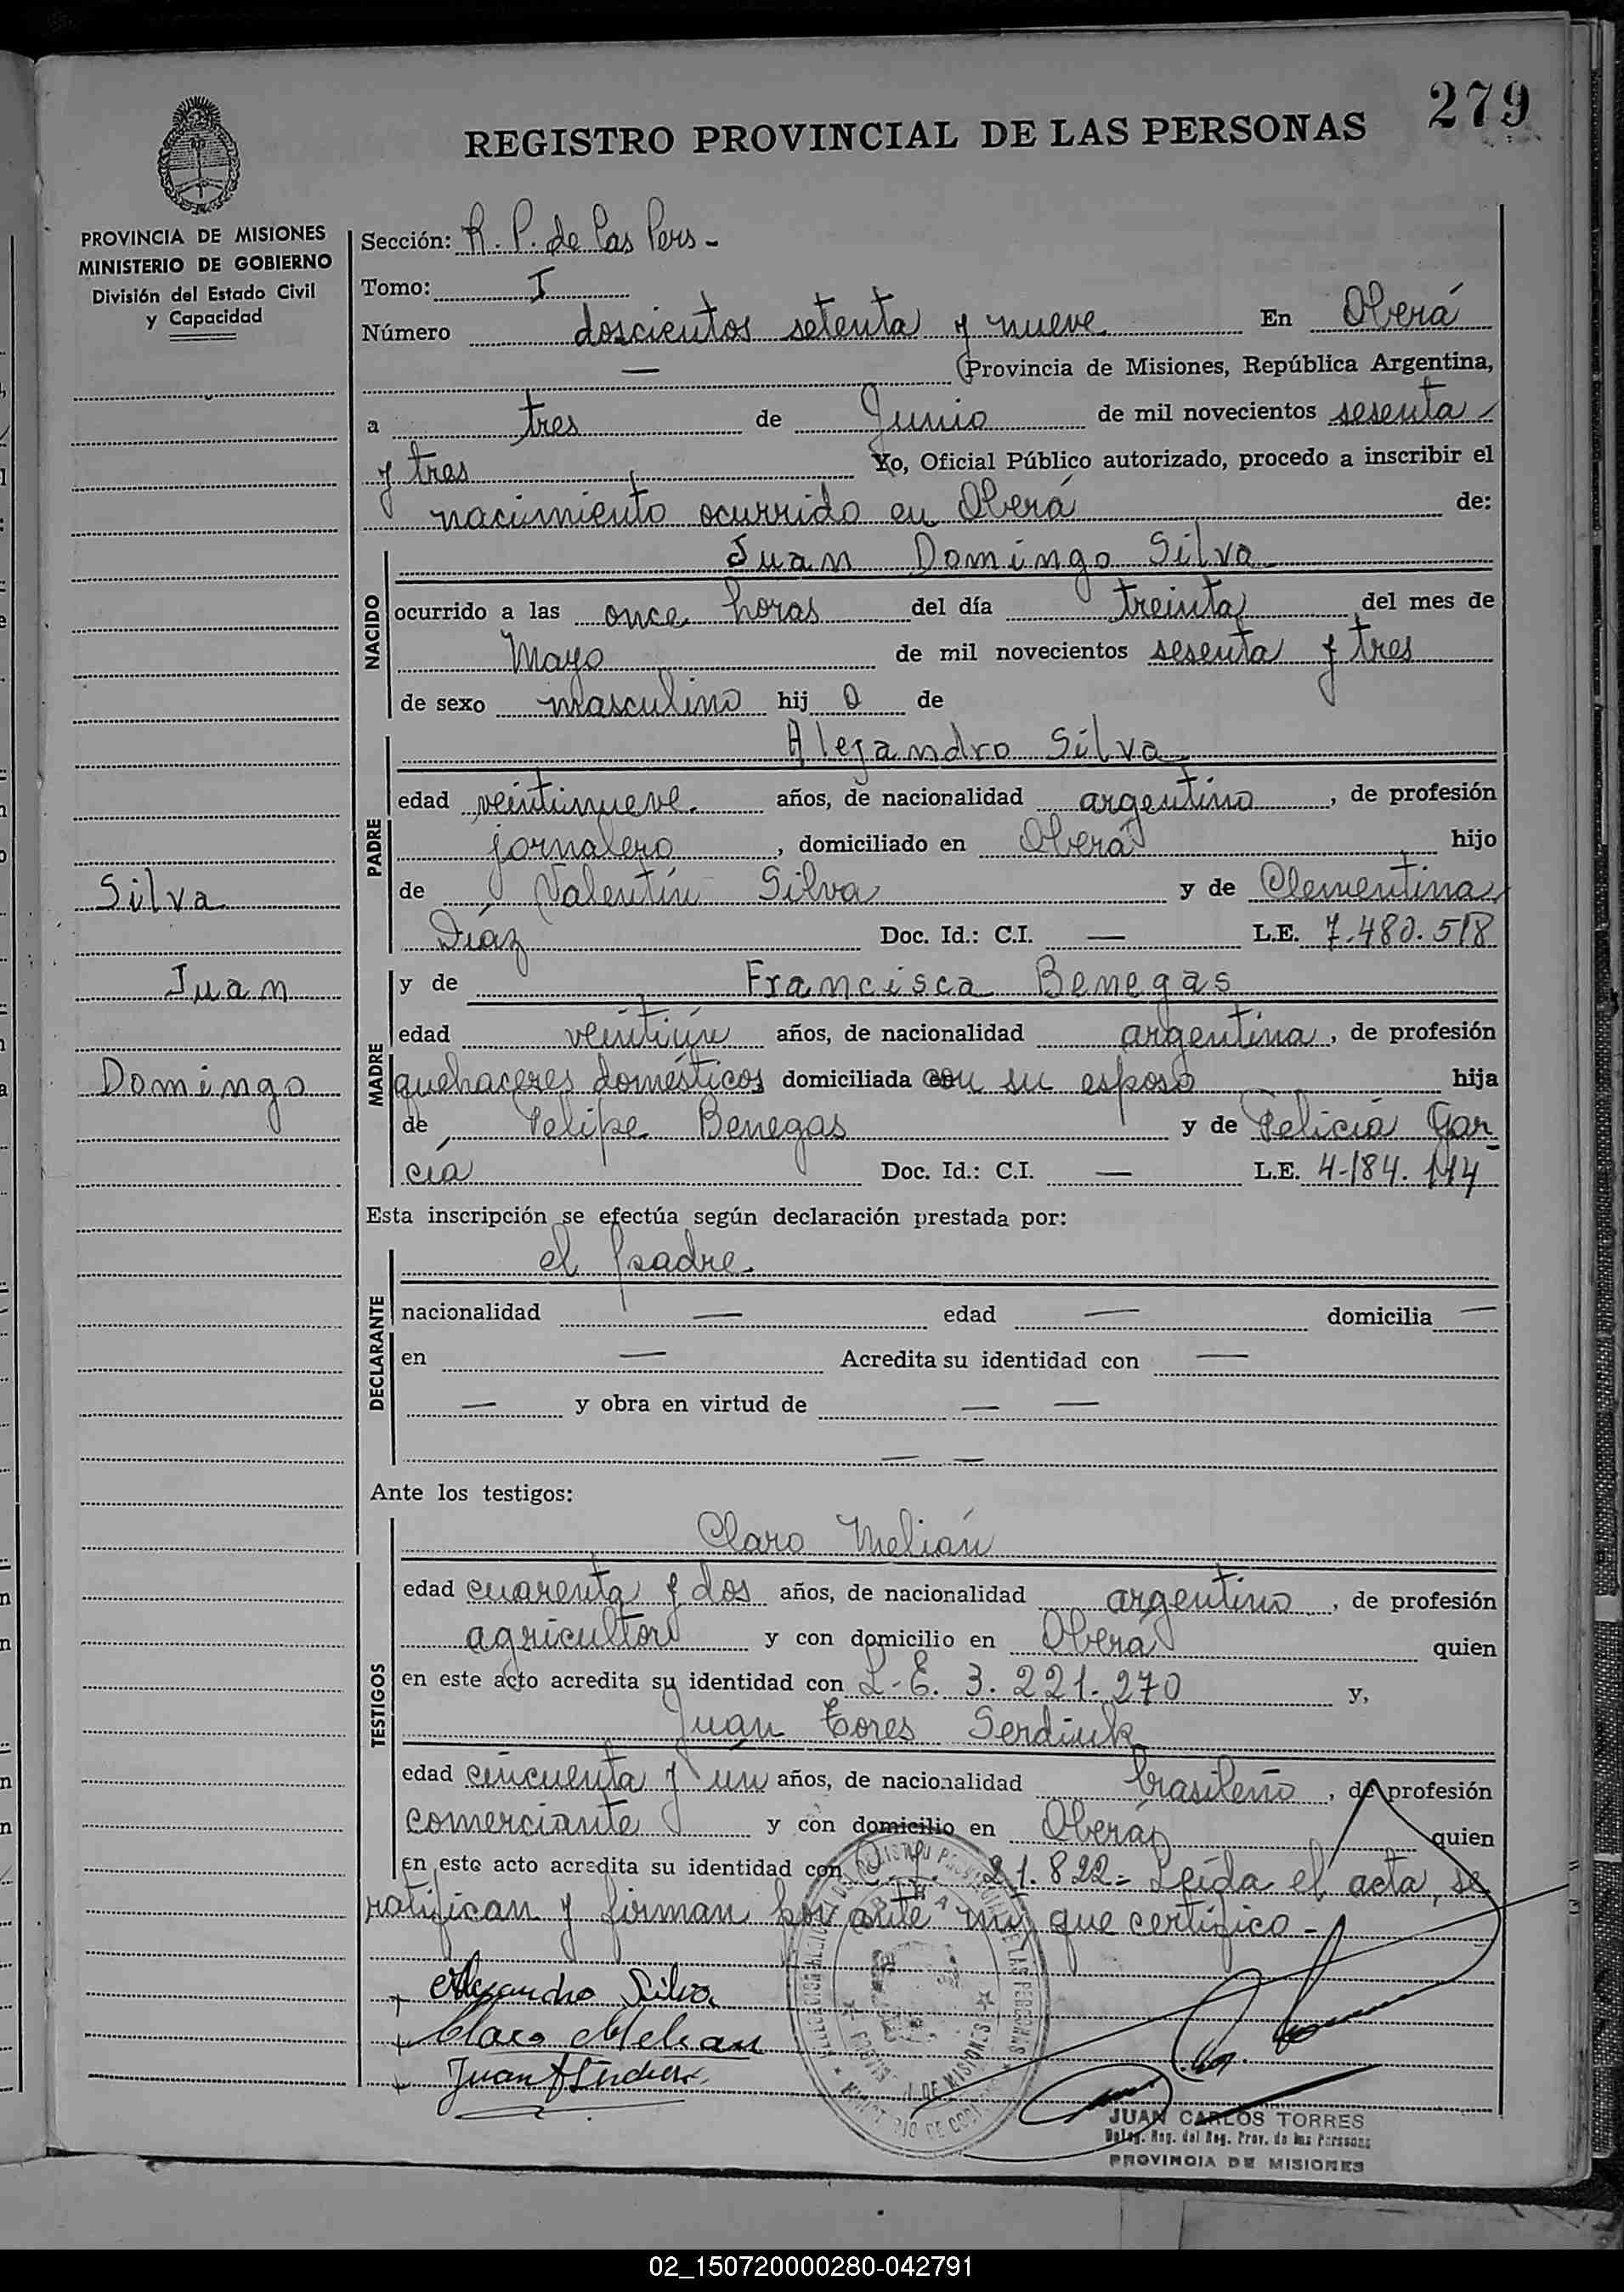 279
REGISTRO PROVINCIAL DE LAS PERSONAS
PROVINCIA DE MISIONES
MINISTERIO DE GOBIERNO
División del Estado Civil
y Capacidad
Sección: R. P. de las Pers -
Tomo: I
Número doscientos setenta y nueve En Oberá
— (Provincia de Misiones, República Argentina,
a tres de Junio de mil novecientos sesenta
y tres Yo, Oficial Público autorizado, procedo a inscribir el
nacimiento ocurrido en Oberá de:
NACIDO
Juan Domingo Silva
ocurrido a las once horas del día treinta del mes de
Mayo de mil novecientos sesenta y tres
de sexo masculino hij o de
PADRE
Alejandro Silva
edad veintinueve años, de nacionalidad argentino, de profesión
jornalero, domiciliado en Oberá hijo
Silva
de Valentín Silva y de Clementina
Díaz Doc. Id.: C.I. — L.E. 7.480.518
Juan
MADRE
y de Francisca Benegas
edad veintiún años, de nacionalidad argentina, de profesión
Domingo
quehaceres domésticos domiciliada con su esposo hija
de Felipe Benegas y de Felicia Gar-
cía Doc. Id.: C.I. — L.E. 4-184.114
Esta inscripción se efectúa según declaración prestada por:
DECLARANTE
el padre
nacionalidad — edad — domicilia —
en — Acredita su identidad con —
— y obra en virtud de — —
— —
Ante los testigos:
TESTIGOS
Claro Melián
edad cuarenta y dos años, de nacionalidad argentino, de profesión
agricultor y con domicilio en Oberá quien
en este acto acredita su identidad con L.E. 3.221.270 y,
Juan Serdiuk
edad cincuenta y un años, de nacionalidad brasileño, de profesión
comerciante y con domicilio en Oberá quien
en este acto acredita su identidad con C.I. 21.822.- Leída el acta, se
ratifican y firman por ante mí que certifico -
Alejandro Silva
Claro Melian
Juan
MINISTERIO DE GOBIERNO
JUAN CARLOS TORRES
Deleg. Reg. del Reg. Prov. de las Personas
PROVINCIA DE MISIONES
02_150720000280-042791